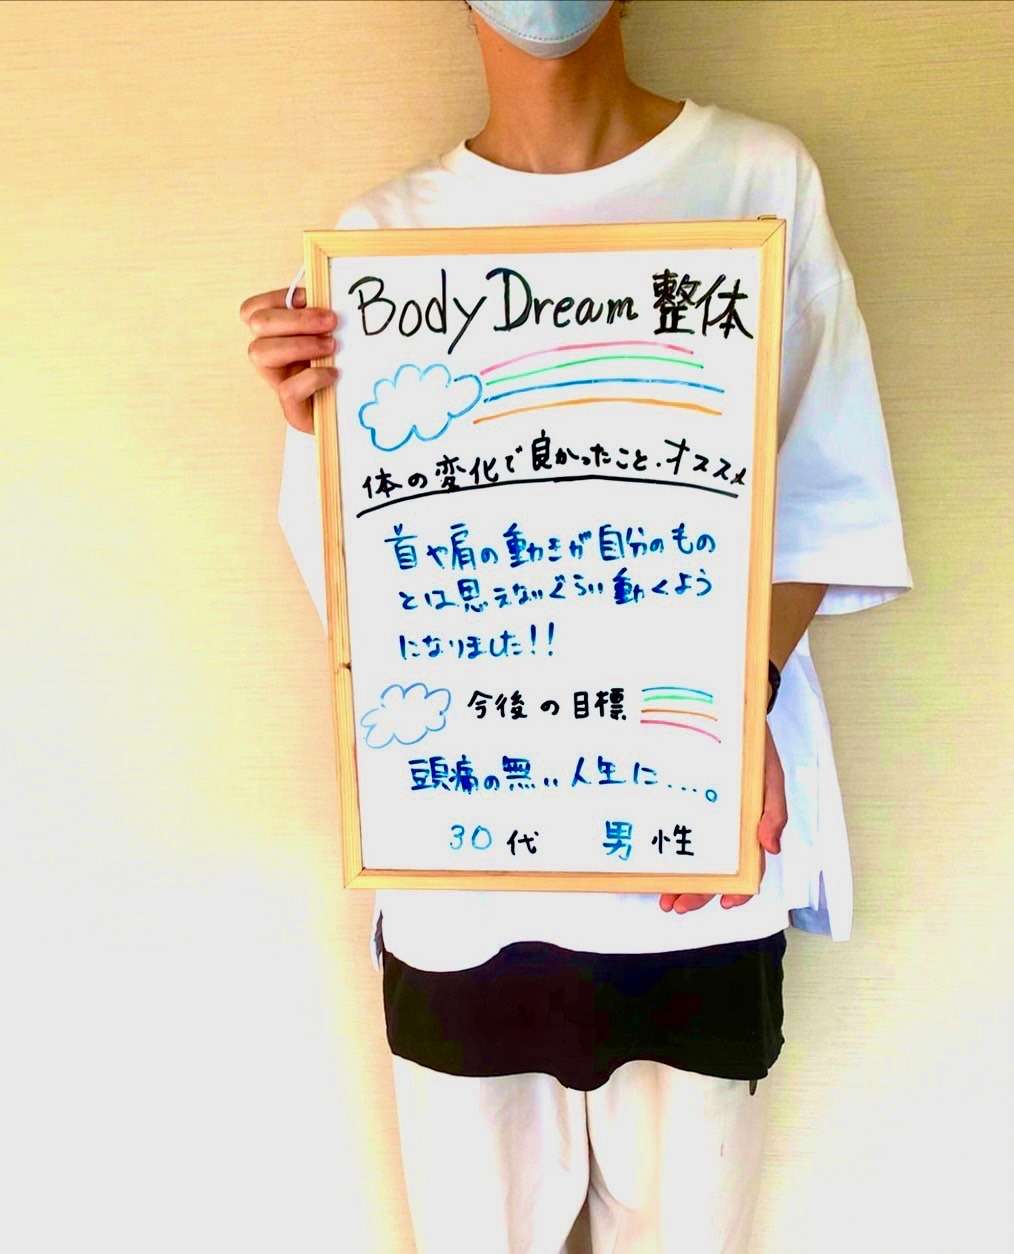 Body Dream 整体
体の変化で良かったこと・オススメ
首や肩の動きが自分のもの
とは思えないぐらい動くよう
になりました!!
今後の目標
頭痛の無い人生に...。
30代 男性